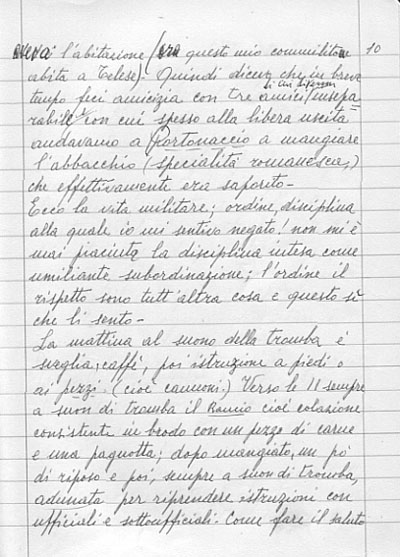 aveva l'abitazione (ora questo mio commiliton 10
abita a Telese). Quindi dicevo che in breve
tempo feci amicizia con tre amici insepa
rabili con cui spesso alla libera uscita
andavamo a Portonaccio a mangiare
l'abbacchio (specialità romanesca,)
che effettivamente era saporito-
Ecco la vita militare; ordine, disciplina
alla quale io mi sentivo negato! non mi è
mai piaciuta la disciplina intesa come
umiliante subordinazione; l'ordine il
rispetto sono tutt'altra cosa e questo sì
che li sento-
La mattina al suono della tromba è
sveglia, caffè, poi istruzione a piedi o
ai pezzi (cioè cannoni.) Verso le 11 sempre
a suon di tromba il Rancio cioè colazione
consistente in brodo con un pezzo di carne
e una pagnotta; dopo mangiato, un pò
di riposo e poi, sempre a suon di tromba,
adunata per riprendere istruzioni con
ufficiali e sottoufficiali. Come fare il saluto